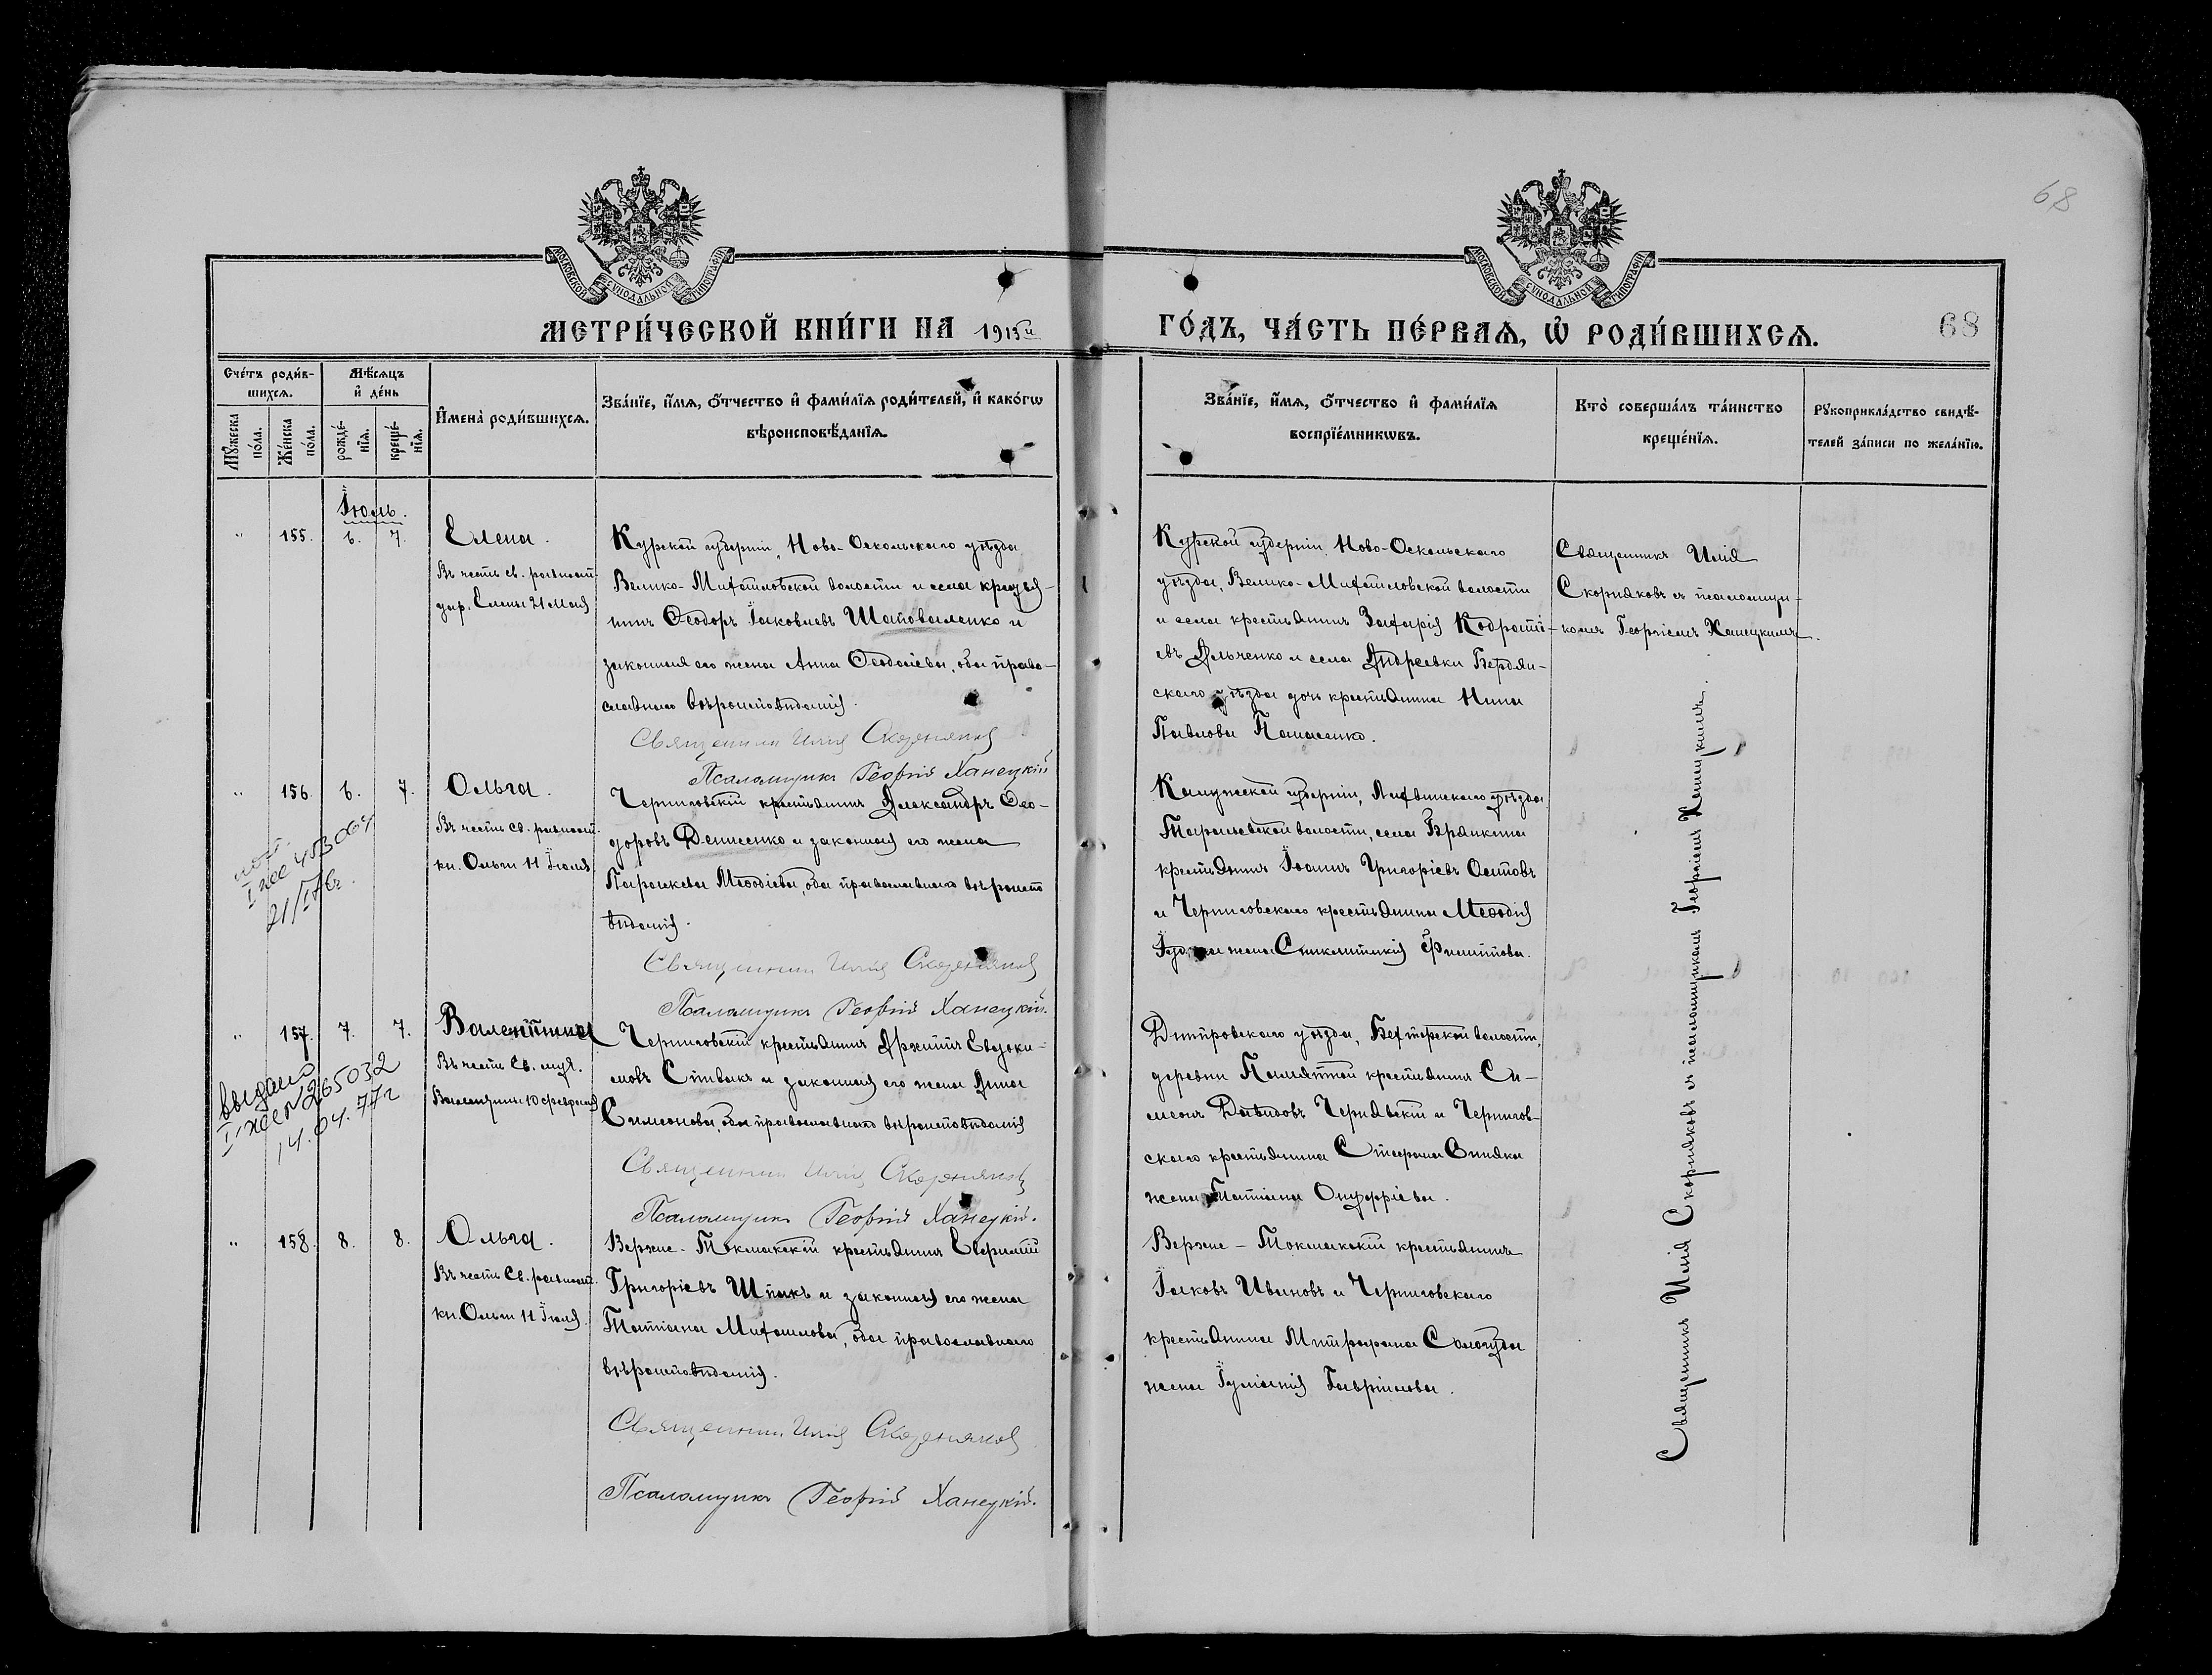 68
МОСКОВСКОЙ СѴНОДАЛЬНОЙ ТИПОГРАФІИ
МОСКОВСКОЙ СѴНОДАЛЬНОЙ ТИПОГРАФІИ
МЕТРИ́ЧЕСКОЙ КНИ́ГИ НА 1915й
ГО́ДЪ, ЧА́СТЬ ПЕ́РВАѦ, Ѡ҆ РОДИ́ВШИХСѦ.
68
Сче́тъ роди́в-
шихсѧ.
Мꙋ́жеска
по́ла.
Же́нска
по́ла.
Мѣ́сѧцъ
и҆ де́нь
рожде́-
нїѧ.
креще́-
нїѧ.
И҆мена̀ роди́вшихсѧ.
Зва́нїе, и҆́мѧ, ѻ҆́тчество и҆ фами́лїѧ роди́телей, и҆ како́гѡ
вѣроисповѣ́данїѧ.
Зва́нїе, и҆́мѧ, ѻ҆́тчество и҆ фами́лїѧ
воспрїе́мникѡвъ.
Кто̀ соверша́лъ та́инство
креще́нїѧ.
Рꙋкоприкла́дство свидѣ́-
телей за́писи по жела́нїю.
Іюль.
" 155. 6. 7.
Елена.
Въ честь св. равноап.
цар. Елены 21 Мая
Курской губерніи, Ново-Оскольскаго уѣзда
Велико-Михайловской волости и села крестья-
нинъ Ѳеодоръ Іаковлевъ Шаповаленко и
законная его жена Анна Ѳеодосіева, оба право-
славнаго вѣроисповѣданія.
Священникъ Илія Скорняковъ
Псаломщикъ Георгій Ханецкій
Курской губерніи, Ново-Оскольскаго
уѣзда, Велико-Михайловской волости
и села крестьянинъ Захарія Кодраті-
евъ Ильченко и села Андреевки Бердян-
скаго уѣзда дочь крестьянина Нина
Павлова Панасенко.
Священникъ Илія
Скорняковъ съ псаломщи-
комъ Георгіемъ Ханецкимъ.
" 156. 6. 7.
Ольга.
Въ честь св. равноап.
кн. Ольги 11 Іюля
453064
21/
Черниговскій крестьянинъ Александръ Ѳео-
доровъ Денисенко и законная его жена
Параскева Меѳодіева, оба православнаго вѣроиспо
вѣданія.
Священникъ Илія Скорняковъ
Псаломщикъ Георгій Ханецкій.
Калужской губерніи, Лихвинскаго уѣзда
волости, села
крестьянинъ Іоаннъ Григоріевъ Осиповъ
и Черниговскаго крестьянина Меѳодія
жена Синклитикія Филиппова.
" 157. 7. 7.
Валентина
Въ честь Св. муч.
Валентины 10 февраля
выдано
265032
14.04.77г
Черниговскій крестьянинъ Архиппъ Евдоки-
мовъ и законная его жена Анна
Симеонова, оба православнаго вѣроисповѣданія
Священникъ Илія Скорняковъ
Псаломщикъ Георгій Ханецкій.
уѣзда, волости,
деревни крестьянинъ Си-
меонъ Давидовъ Чернявскій и Чернигов-
скаго крестьянина Стефана
жена Татіана Онуфріева.
" 158. 8. 8.
Ольга.
Въ честь Св. равноап.
кн. Ольги 11 Іюля.
Верхне-Токмакскій крестьянинъ Евфимій
Григоріевъ Шпакъ и законная его жена
Татіана Михайлова, оба православнаго
вѣроисповѣданія.
Священникъ Илія Скорняковъ
Псаломщикъ Георгій Ханецкій.
Верхне-Токмакскій крестьянинъ
Іаковъ Ивановъ и Черниговскаго
крестьянина Митрофана
жена Іуліанія Гавріилова.
Священникъ Илія Скорняковъ съ псаломщикомъ Георгіемъ Ханецкимъ.